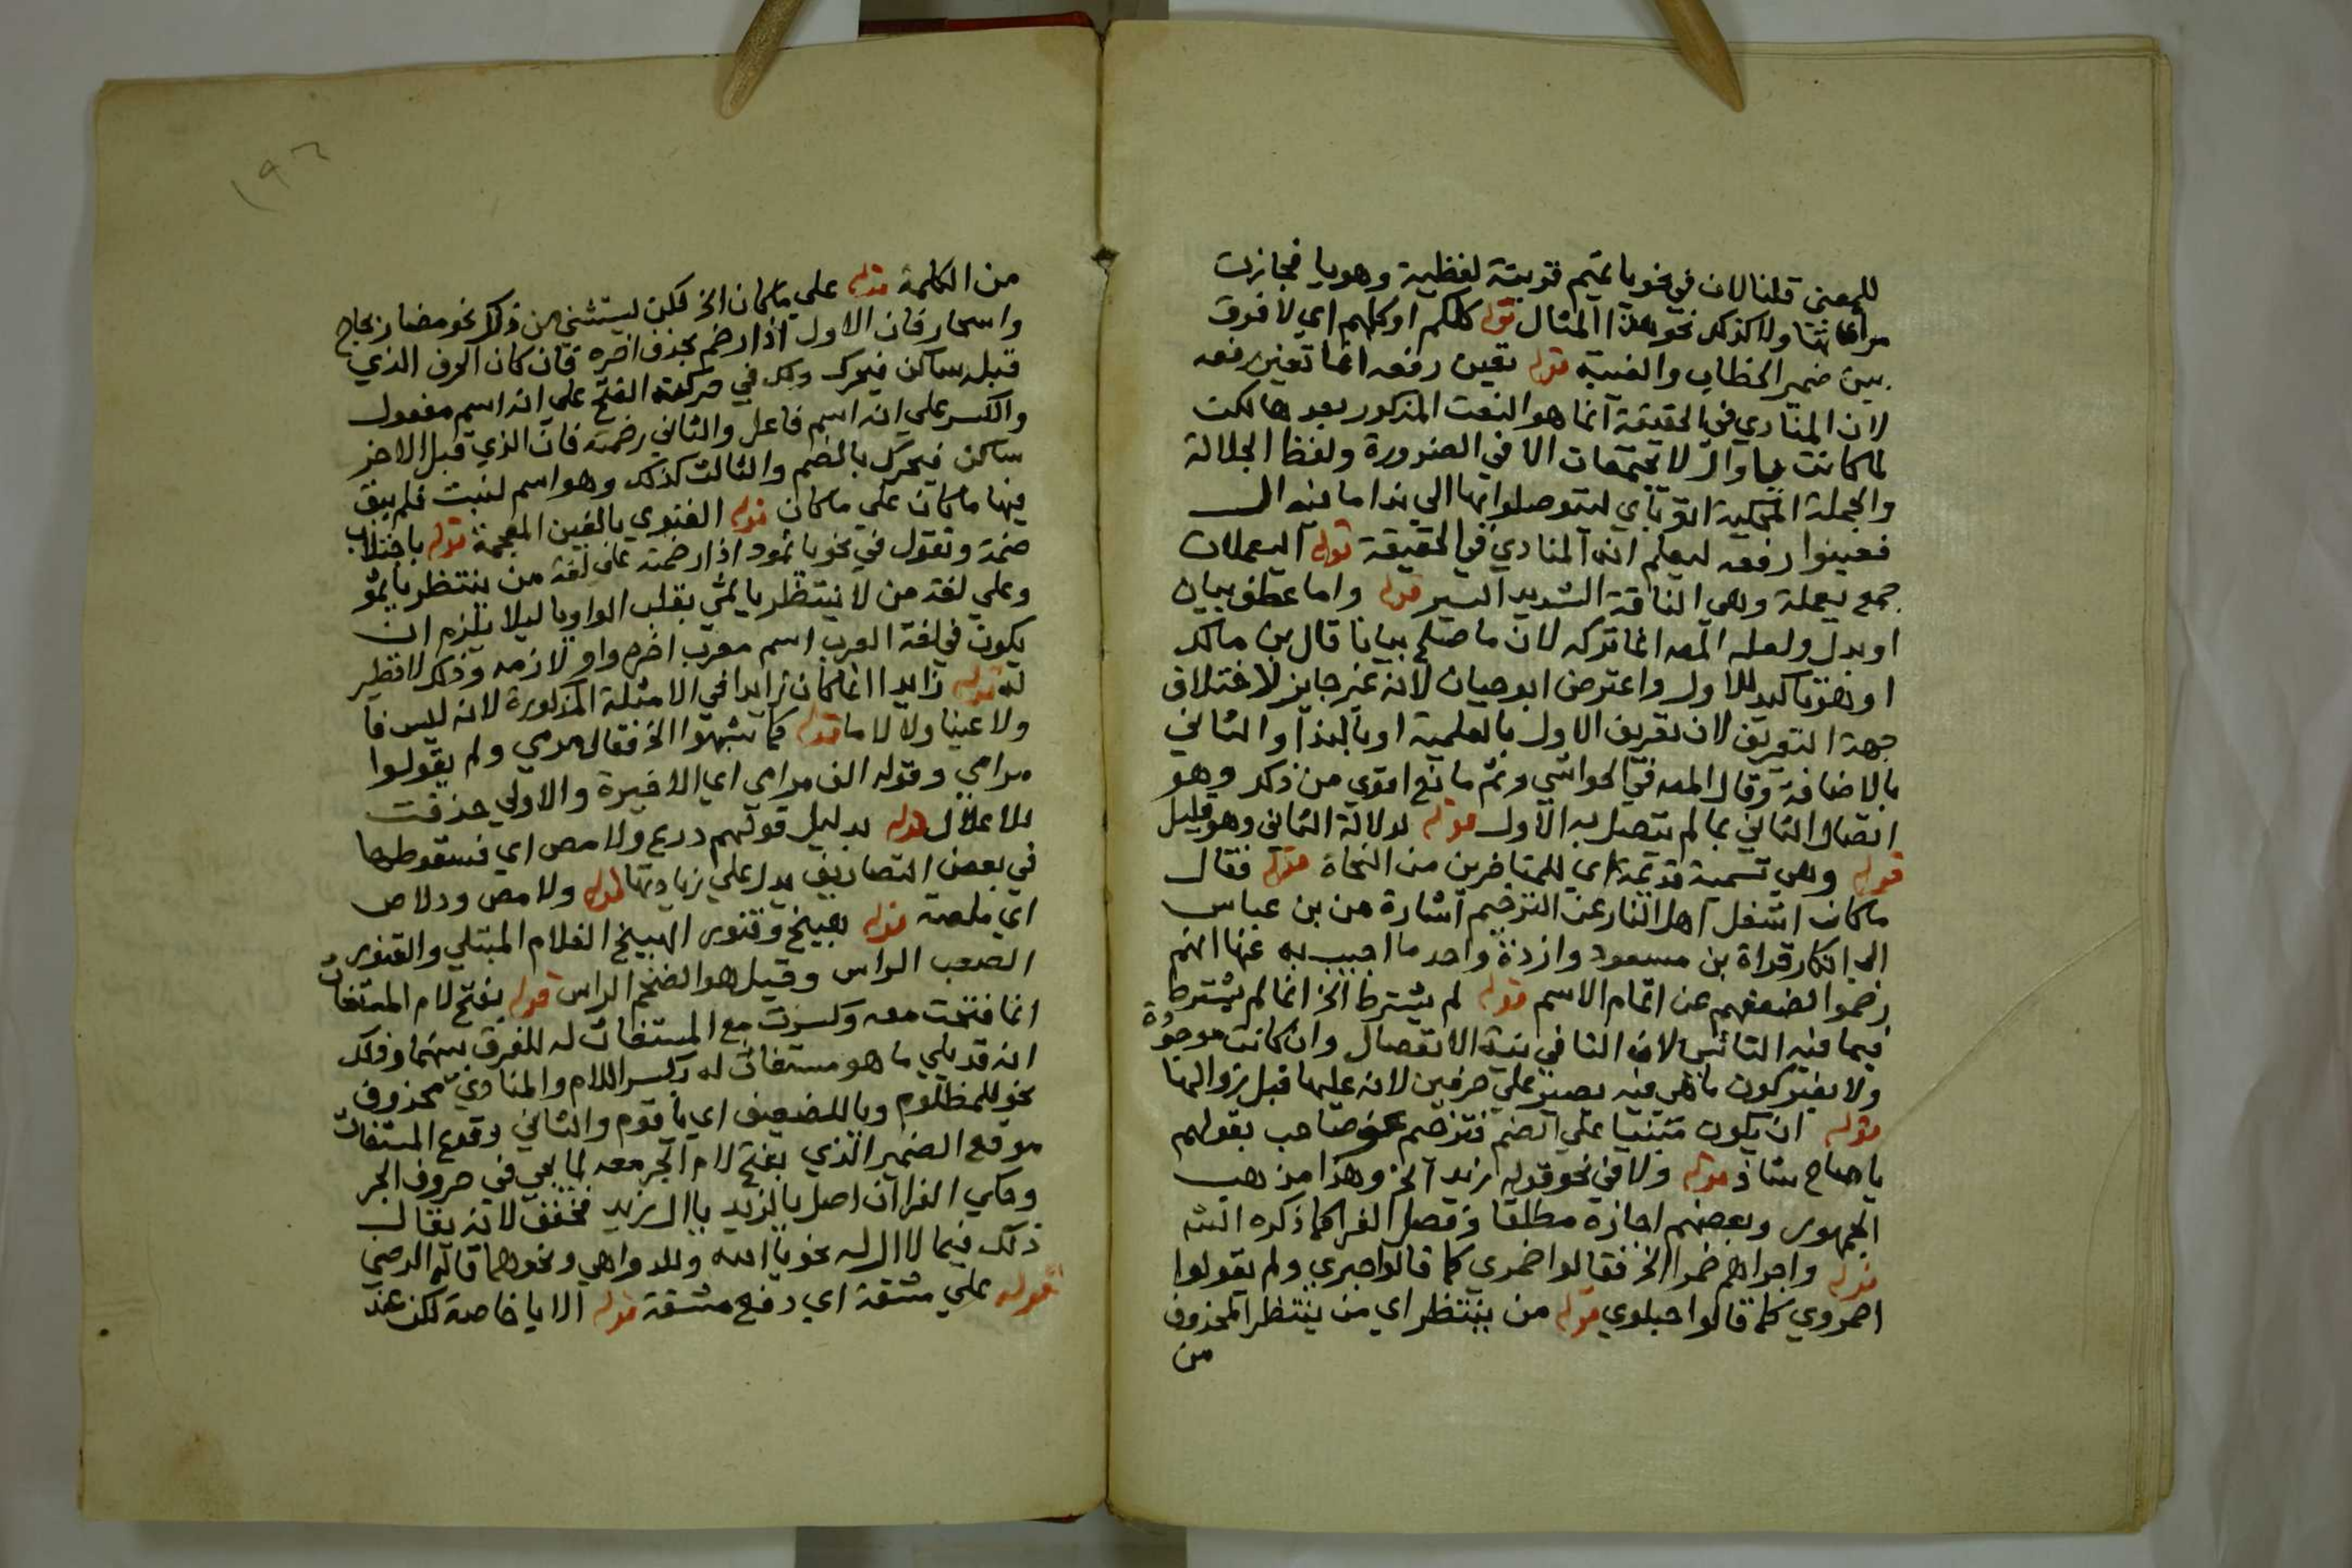 للمعنى قلنا لان في نحو يا تميم قرينة لفظية وهو يا فجازت
مراعاتها ولا كذلك نحو هذا المثال قوله كلكم او كلهم اي لا فرق
بين ضمير الخطاب والغيبة قوله تعين رفعه انما تعين رفعه
لان المنادي في الحقيقة انما هو النعت المذكور بعدها لكن
لما كانت يا وال لا يجتمعان الا في الضرورة ولفظ الجلالة
والجملة المحكية اتو باي ليتوصلوا بها الي ندا ما فيه ال
فعينوا رفعه ليعلم انه المنادي في الحقيقة قوله اليعملات
جمع يعملة وهي الناقة الشديد السير قوله واما عطف بيان
او بدل ولعله المص انما تركه لان ما صلح بيانا قال بن مالك
او نحو تاكيد للاول واعترض ابو حيان لانه غير جايز لاختلاف
جهة التعريف لان تعريف الاول بالعلمية او بالندا والثاني
بالاضافة وقال المص في الحواشي وثم مانع اقوي من ذلك وهو
اتصال الثاني بما لم يتصل به الاول قوله لدلالة الثاني وهو قليل
قوله وهي تسمية قديمة اي للمتاخرين من النحاة قوله فقال
ما كان اشغل اهل النار عن الترخيم اشارة من بن عباس
الي انكار قراة بن مسعود وازدة واحد ما اجيب به عنها انهم
رخموا لضعفهم عن اتمام الاسم قوله لم يشترط الخ انما لم يشترط
فيما فيه التانيث لان التا في نية الانفصال وان كانت موجودة
ولا يضر كون ما هي فيه يصير علي حرفين لانه عليها قبل زوالها
قوله ان يكون مبنيا علي الضم فترخيم نحو صاحب بقولهم
يا صاح شاذ قوله ولا في نحو قوله زيد الخ وهذا مذهب
الجمهور وبعضهم اجازه مطلقا وفصل الفرا كما ذكره الشه
قوله واجراهم حمرا الخ فقالوا حمرى كما قالوا حبري ولم يقولوا
احمروي كما قالوا حبلوي قوله من ينتظر اي من ينتظر المحذوف
من
١٩٦
من الكلمة قوله علي ما كان الخ لكن ليستثني من ذلك نحو مضار بجاج
واسحار فان الاول اذا رخم بحذف اخره فان كان الحرف الذي
قبله ساكن فيحرك ولك في حركته الفتح على انه اسم مفعول
والكسر علي انه اسم فاعل والثاني رخمته فان الذي قبل الاخر
ساكن فيحرك بالضم والثالث كذلك وهو اسم لنبت فلم يبق
فيها ما كان علي ما كان قوله الغنوي بالغين المعجمة قوله باختلاب
ضمة وتقول في نحو يا ثمود اذا رخمته على لغة من ينتظر يا ثمو
وعلي لغة من لا ينتظر يا ثمي بقلب الواو يا ليلا يلزم ان
يكون في لغة العرب اسم معرب اخره واو لازمه وذلك لا نظير
له قوله زايدا انما كان زايدا في الامثلة المذكورة لانه ليس فا
ولا عينا ولا لاما قوله كما شبهوا الخ فقالوا مرمي ولم يقولوا
مرامي وقوله الف مرامي اي الاخيرة والاولي حذفت
للاعلال قوله بدليل قولهم درع ولامص اي فسقوطها
في بعض التصاريف يدل علي زيادتها قوله ولامص ودلاص
اي ملصة قوله بهبيخ وقنور الهبيخ الغلام الممتلي والقنور
الصعب الراس وقيل هو الضخم الراس قوله بفتح لام المستغاث
انما فتحت معه وكسرت مع المستغاث له للفرق بينهما وذلك
انه قد يلي ما هو مستغاث له بكسر اللام والمنادي محذوف
نحو للمظلوم ويا للضعيف اي يا قوم والثاني وقوع المستغاث
موقع الضمير الذي يفتح لام الجر معه لما يجي في حروف الجر
وحكي الفرا ان اصل يا لزيد يا ال زيد فخفف لانه يقال
ذلك فيما لا ال له نحو يا الله وللدواهي ونحوهما قاله الرضي
قوله علي مشقة اي دفع مشقة قوله الا يا خاصة لكن عند